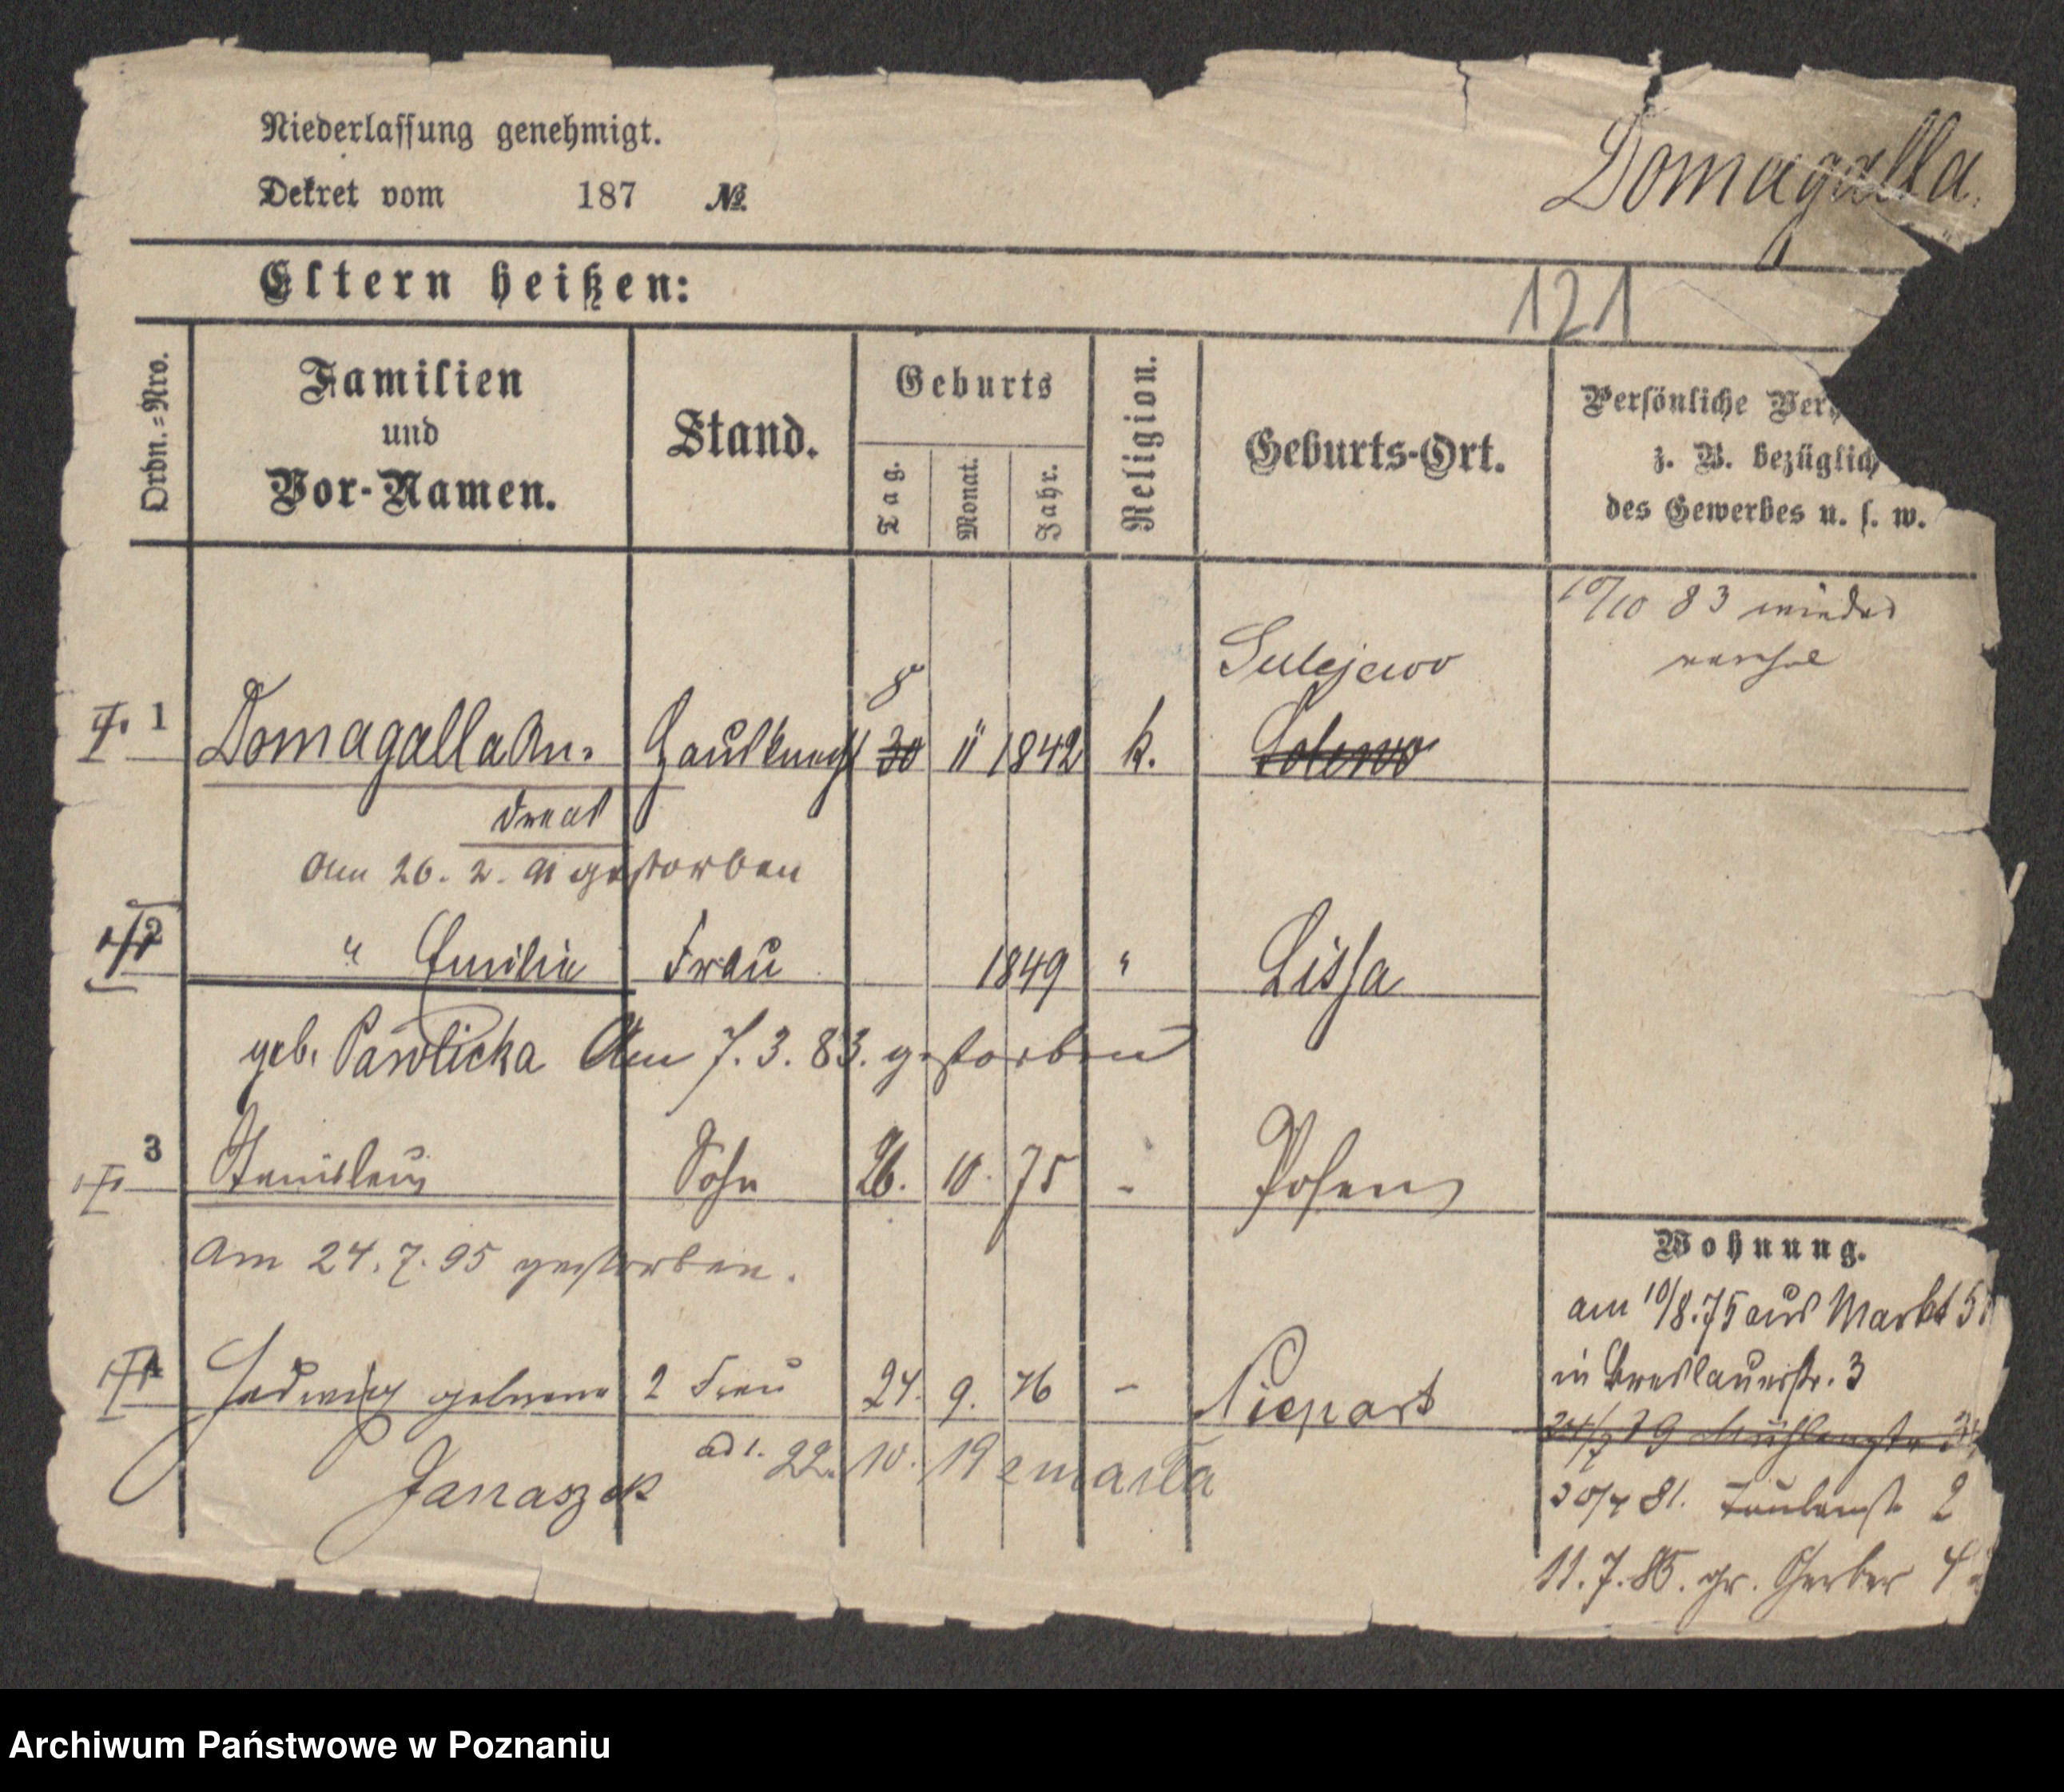 Niederlassung genehmigt.
Dekret vom 187 №.
Domagalla.
Eltern heißen:
121
Ordn.=Nro.
Familien
und
Vor-Namen.
Stand.
Geburts
Tag.
Monat.
Jahr.
Religion.
Geburts-Ort.
Persönliche Ver
z. B. bezüglich
des Gewerbes u. s. w.
10/10 83 wieder
Sulejewo
8
1 Domagalla An= Hausknecht 30 11 1842 k. Solewo
dreas
Am 26. 2. 91 gestorben
2 " Emilie Frau 1849 " Lissa
geb. Pawlicka Am 7. 3. 83. gestorben
3 Stanislaus Sohn 26. 10. 75 - Posen
Am 24. 7. 95 gestorben.
4 Hedwig geborene 2 Frau 24. 9. 46 - Niepart
Janaszek ad 1. 22. 10. 19 zmarła
Wohnung.
am 10/8.75 aus Markt 5
in Breslauerstr. 3
24/7 79 Mühlenstr 3
30/4 81. Taubenstr 2
11. 7. 85. gr. Gerber 4
Archiwum Państwowe w Poznaniu